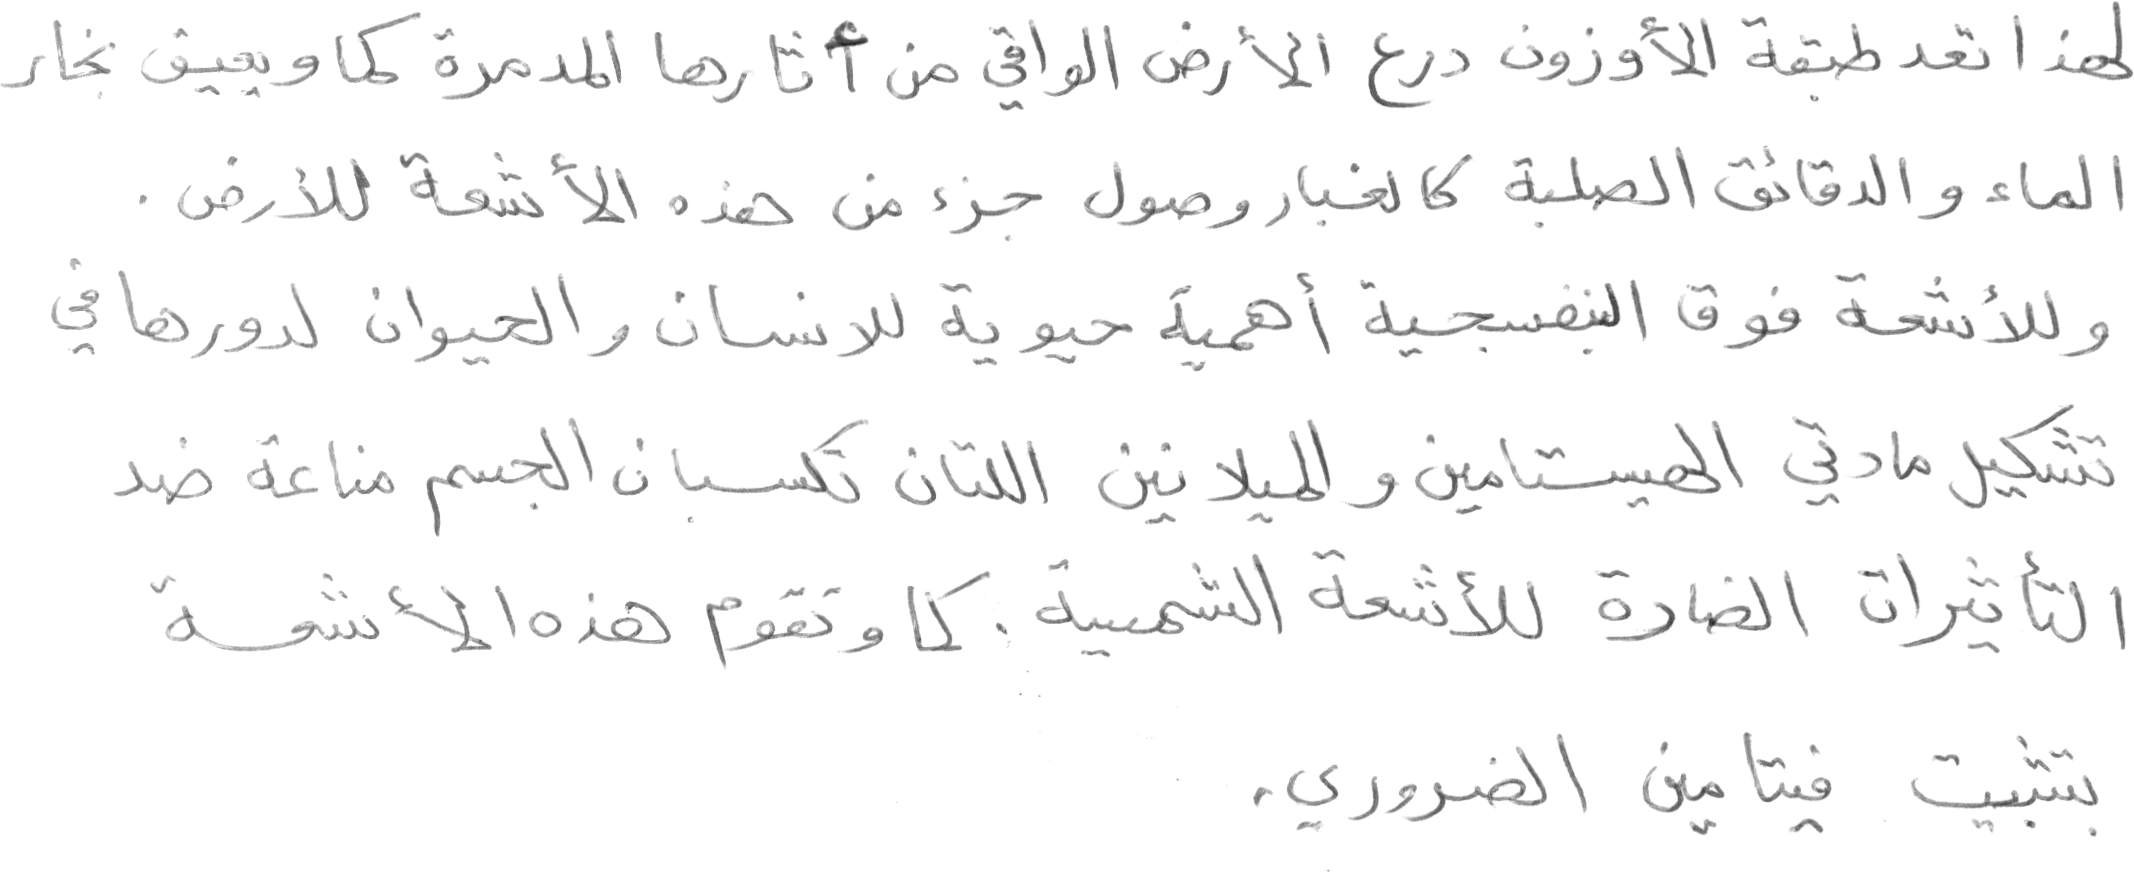 لهذا تعد طبقة الأوزون درع الأرض الواقي من أثارها المدمرة كما ويعيق بخار
الماء والدقائق الصلبة كالغبار وصول جزء من هذه الأشعة للأرض .
وللأشعة فوق البنفسجية أهمية حيوية للانسان والحيوان لدورها في
تشكيل مادتي الهيستامين والميلانين اللتان تكسبان الجسم مناعة ضد
التأثيرات الضارة للأشعة الشمسية . كما وتقوم هذه الأشعة
بتثبيت فيتامين الضروري .